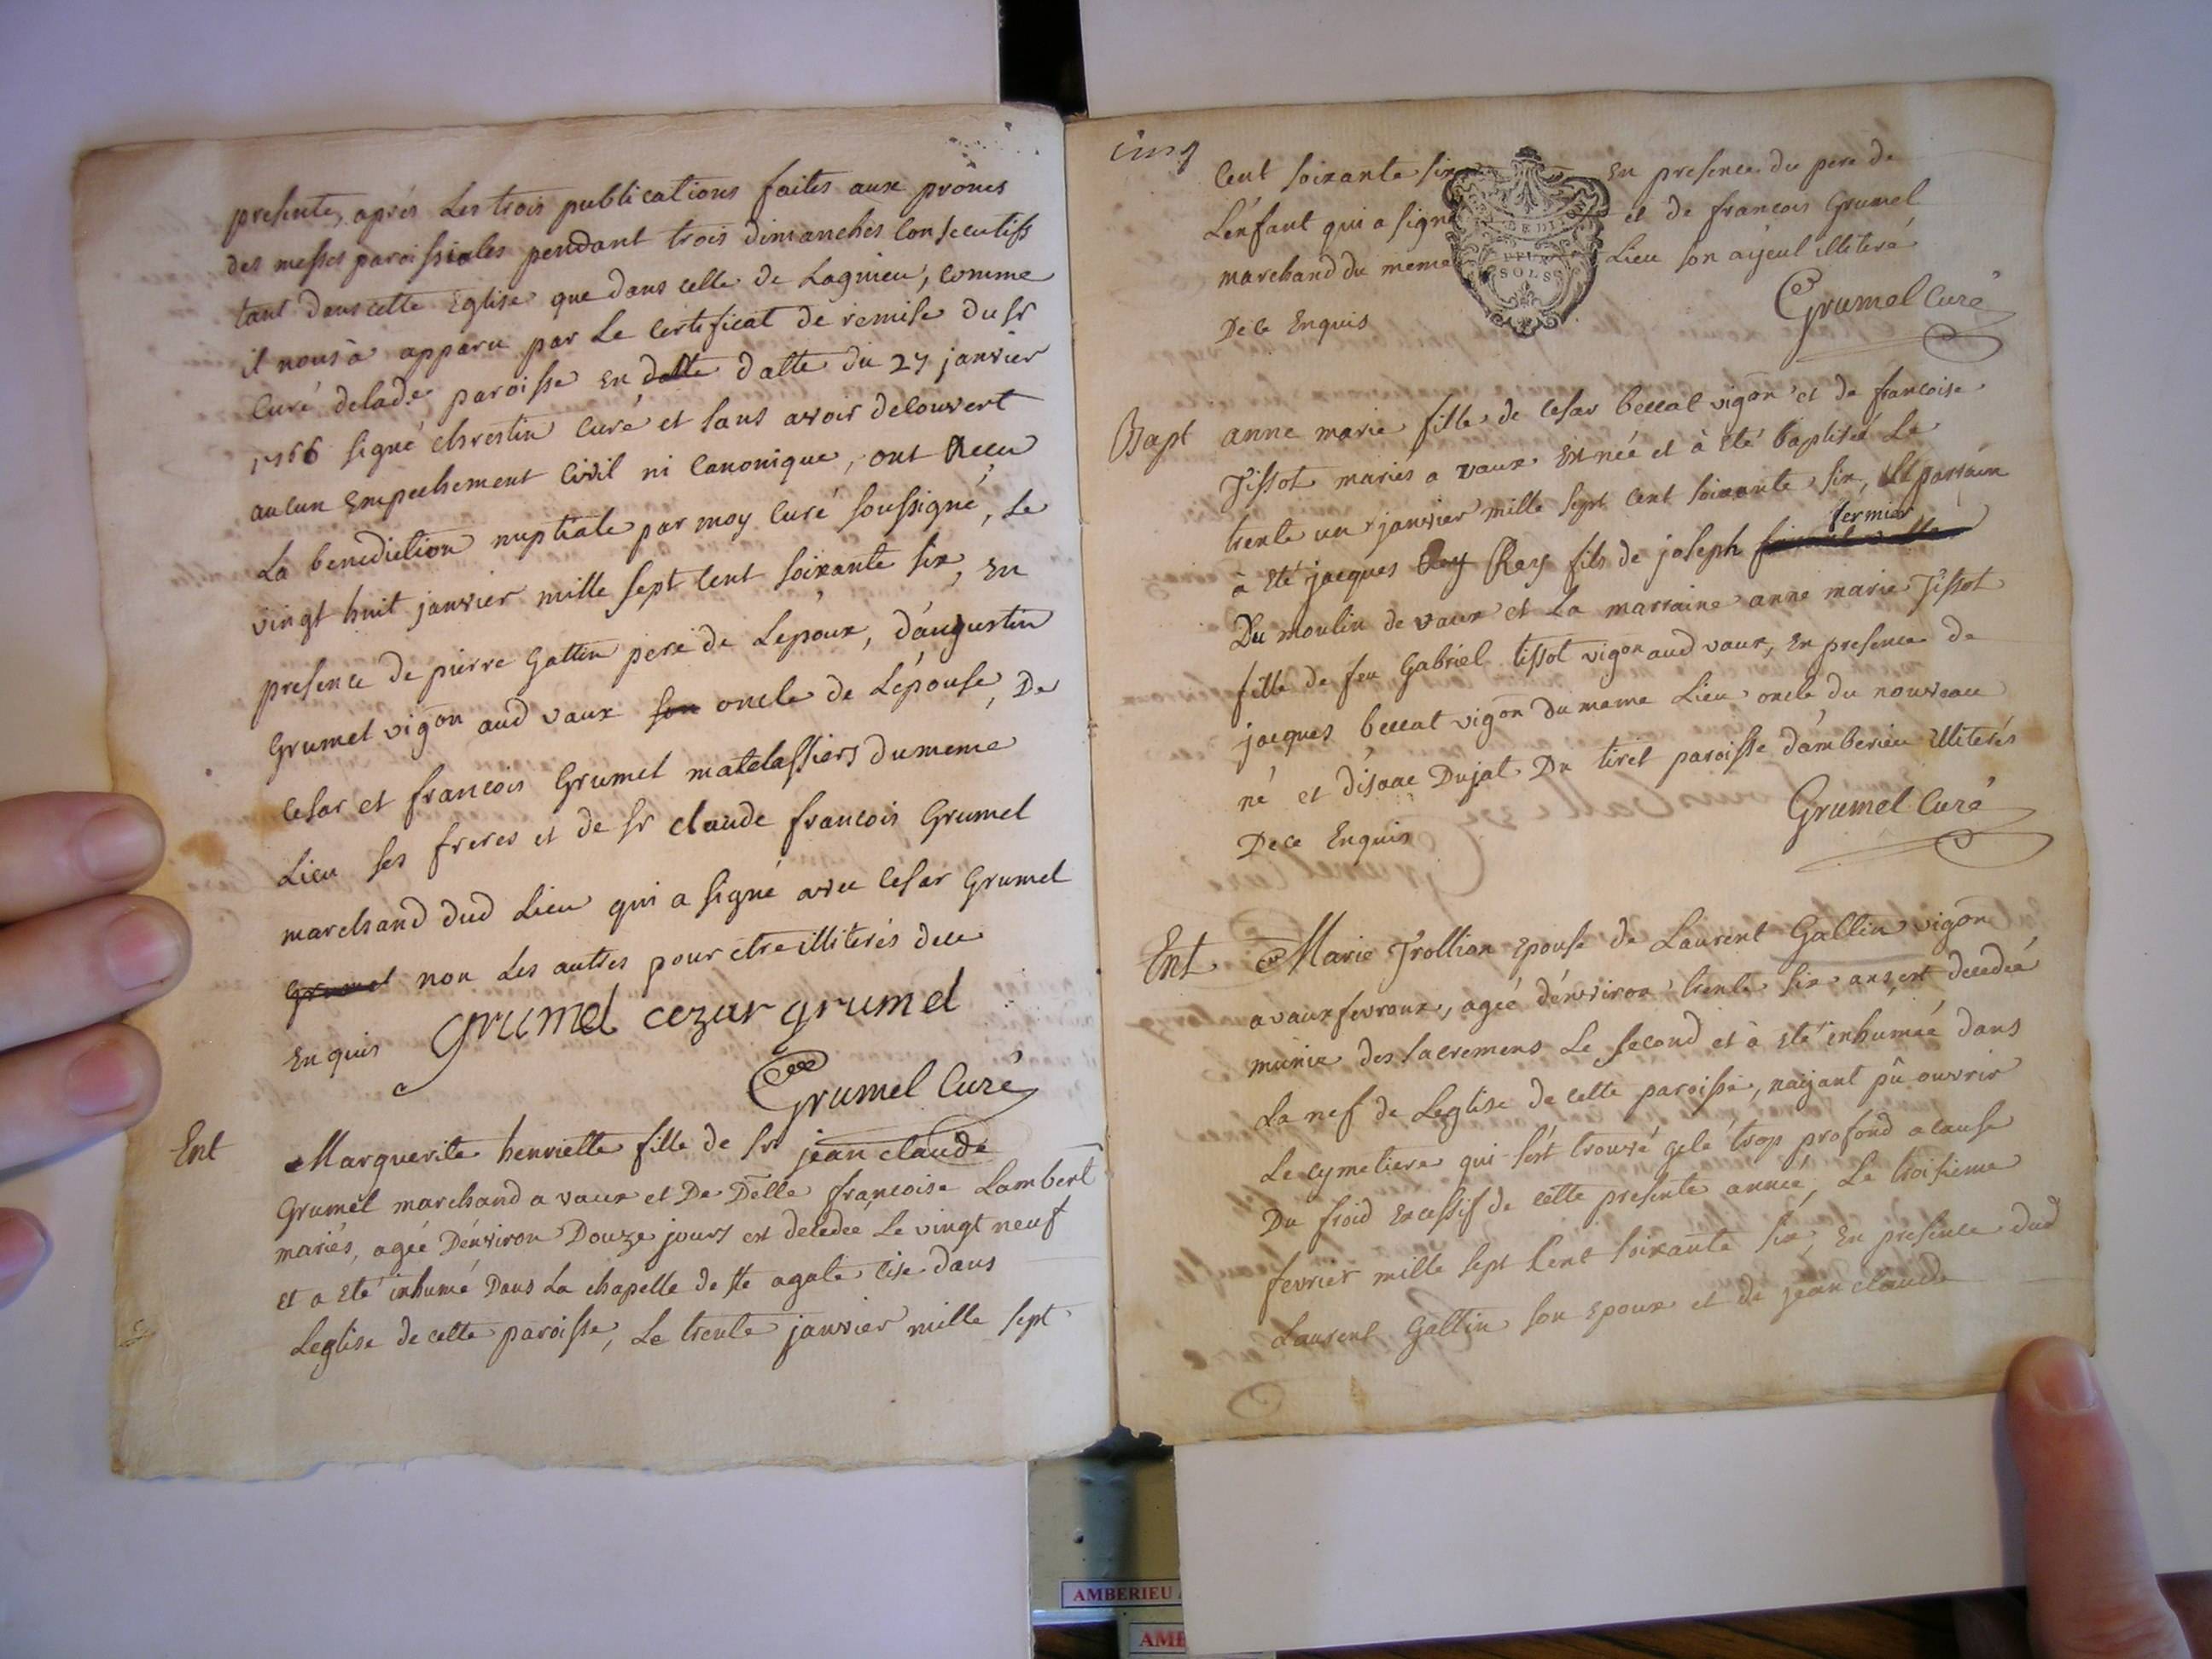 presente, aprés Les trois publications faites aux prônes
des messes paroissiales pendant trois dimanches Consecutifs
tant dans cette Eglise que dans celle de Lagnieu, comme
il nous à apparu par Le Certificat de remise du Sr
Curé delade paroisse En datte du 27 janvier
1766 signé chrestin Curé et sans avoir decouvert
aucun Empechement Civil ni Canonique, ont Recu
La benediction nuptiale par moy Curé soussigné, Le
vingt huit janvier mille sept Cent soixante six, En
presence de pierre Gallin pere de L'epoux, d'augustin
Grumet vigon aud vaux son oncle de L'épouse, De
Cesar et francois Grumet matelassiers du meme
Lieu ses freres et de Sr claude francois Grumel
marchand dud Lieu qui a signé avec Cesar Grumel
Grumel non Les autres pour etre illiterés dece
Enquis Grumel cezar grumel
Grumel Curé
Ent Marguerite henriette fille de Sr jean claude
Grumel marchand a vaux et De Delle françoise Lambert
mariés, agée D'environ Douze jours est decedée Le vingt neuf
et a Eté inhumé Dans La chapelle de ste agate sise dans
Leglise de cette paroisse, Le trente janvier mille sept
cinq
Cent soixante six En presence du pere de
L'enfant qui a signé et de francois Grumel
marchand du meme Lieu son ayeul illiteré
De ce Enquis
Grumel Curé
DEUX
SOLS
Bapt anne marie fille de Cesar beccat vigon et de francoise
Tissot mariés a vaux Est née et à Eté baptisée Le
trente un janvier mille sept Cent soixante six, Le parrain
fermier
à Eté jacques Rey Rey fils de joseph
Du moulin de vaux et La marraine anne marie Tissot
fille de feu Gabriel tissot vigon aud vaux, En presence de
jacques beccat vigon du meme Lieu oncle du nouveau
né et d'isaac Dujat Du tiret paroisse d'amberieu illiterés
De ce Enquis
Grumel Curé
Ent Marie Trollion Epouse de Laurent Gallin vigon
a vauxfevroux, agée d'environ trente six ans, est decedée
munie des sacremens Le second et à Eté inhumée dans
La nef de Leglise de cette paroisse, nayant pû ouvrir
Le cymetiere qui s'est trouvé gelé trop profond a cause
Du froid Excessif de cette presente année, Le troisieme
fevrier mille sept Cent soixante six, En presence dud
Laurent Gallin son Epoux et de jean claude
AMBERIEU